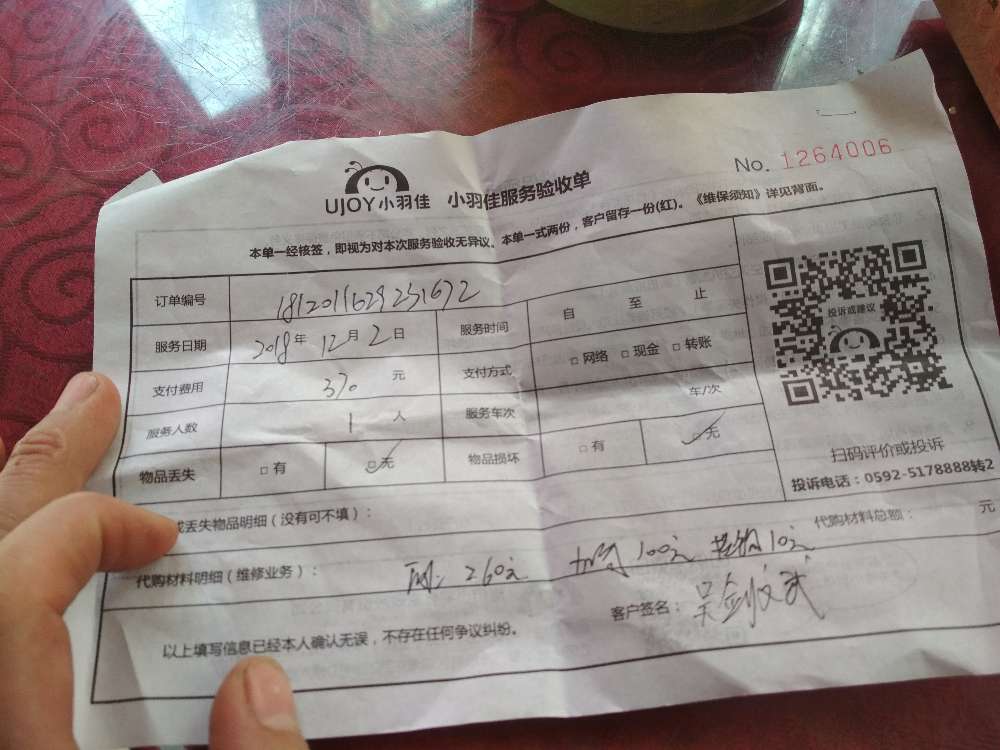 No. 1264006
UJOY小羽佳 小羽佳服务验收单
本单一经核签，即视为对本次服务验收无异议。本单一式两份，客户留存一份(红)。《维保须知》详见背面。
订单编号 1812011629251672
服务日期 2018年12月2日 服务时间 自 至 止
支付费用 370 元 支付方式 □网络 □现金 □转账
服务人数 1 人 服务车次 车/次
物品丢失 □有 □无 物品损坏 □有 □无
投诉或建议
扫码评价或投诉
投诉电话：0592-5178888转2
丢失物品明细（没有可不填）：
代购材料总额： 元
代购材料明细（维修业务）： 260元 100元 10元
客户签名：
以上填写信息已经本人确认无误，不存在任何争议纠纷。